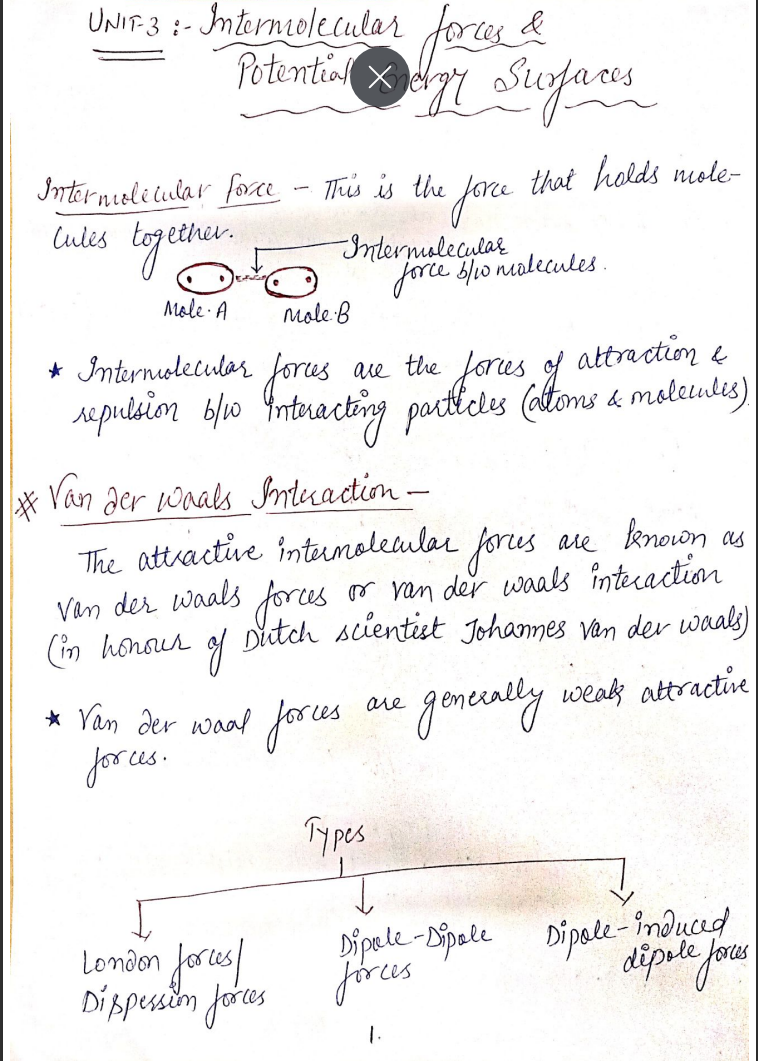 UNIT-3 :- Intermolecular forces &
Potential Energy Surfaces
Intermolecular force - This is the force that holds mole-
cules together.
Intermolecular
force b/w molecules.
Mole. A
Mole. B
★ Intermolecular forces are the forces of attraction &
repulsion b/w interacting particles (atoms & molecules)
# Van der waals Interaction -
The attractive intermolecular forces are known as
Van der waals forces or van der waals interaction
(in honour of Dutch scientist Johannes Van der waals)
★ Van der waal forces are generally weak attractive
forces.
Types
London forces/
Dispession forces
Dipole-Dipole
forces
Dipole-induced
dipole forces
1.